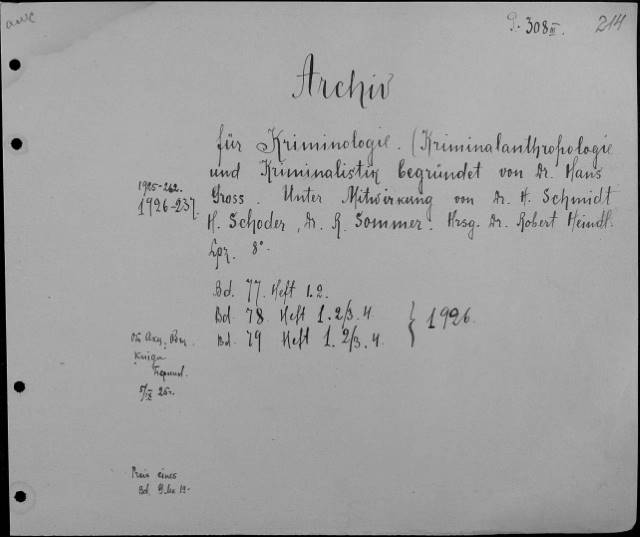 308 III. 214
Archiv
für Kriminologie. (Kriminalanthropologie
und Kriminalistik begründet von Dr. Hans
Gross. Unter Mitwirkung von Dr. H. Schmidt
H. Schoder, Dr. R. Sommer. Hrsg. Dr. Robert Heindl.
Lpz. 8°.
1925-262.
1926-237.
Bd. 77. Heft 1.2.
Bd 78 Heft 1.2/3.4.
Bd. 79 Heft 1.2/3.4.
1926.
Preis eines
Bd.